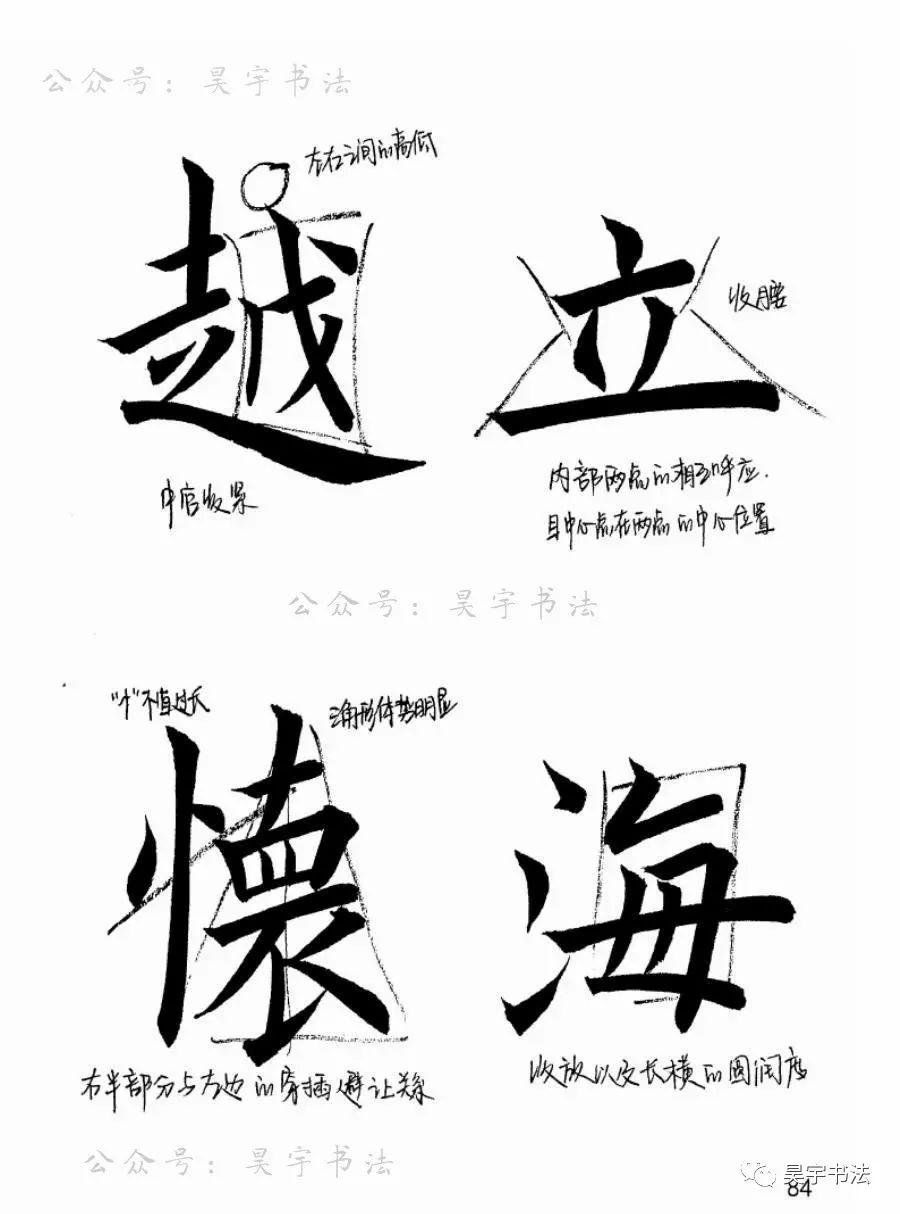 公众号：昊宇书法
左右之间的高低
越
立
收腰
中宫收紧
内部两点的相互呼应.
且中心点在两点的中心位置
公众号：昊宇书法
"忄"不宜过长
三角形体势明显
懷
海
右半部分与左边的穿插避让关系
收放以及长横的圆润度
公众号：昊宇书法
昊宇书法
84